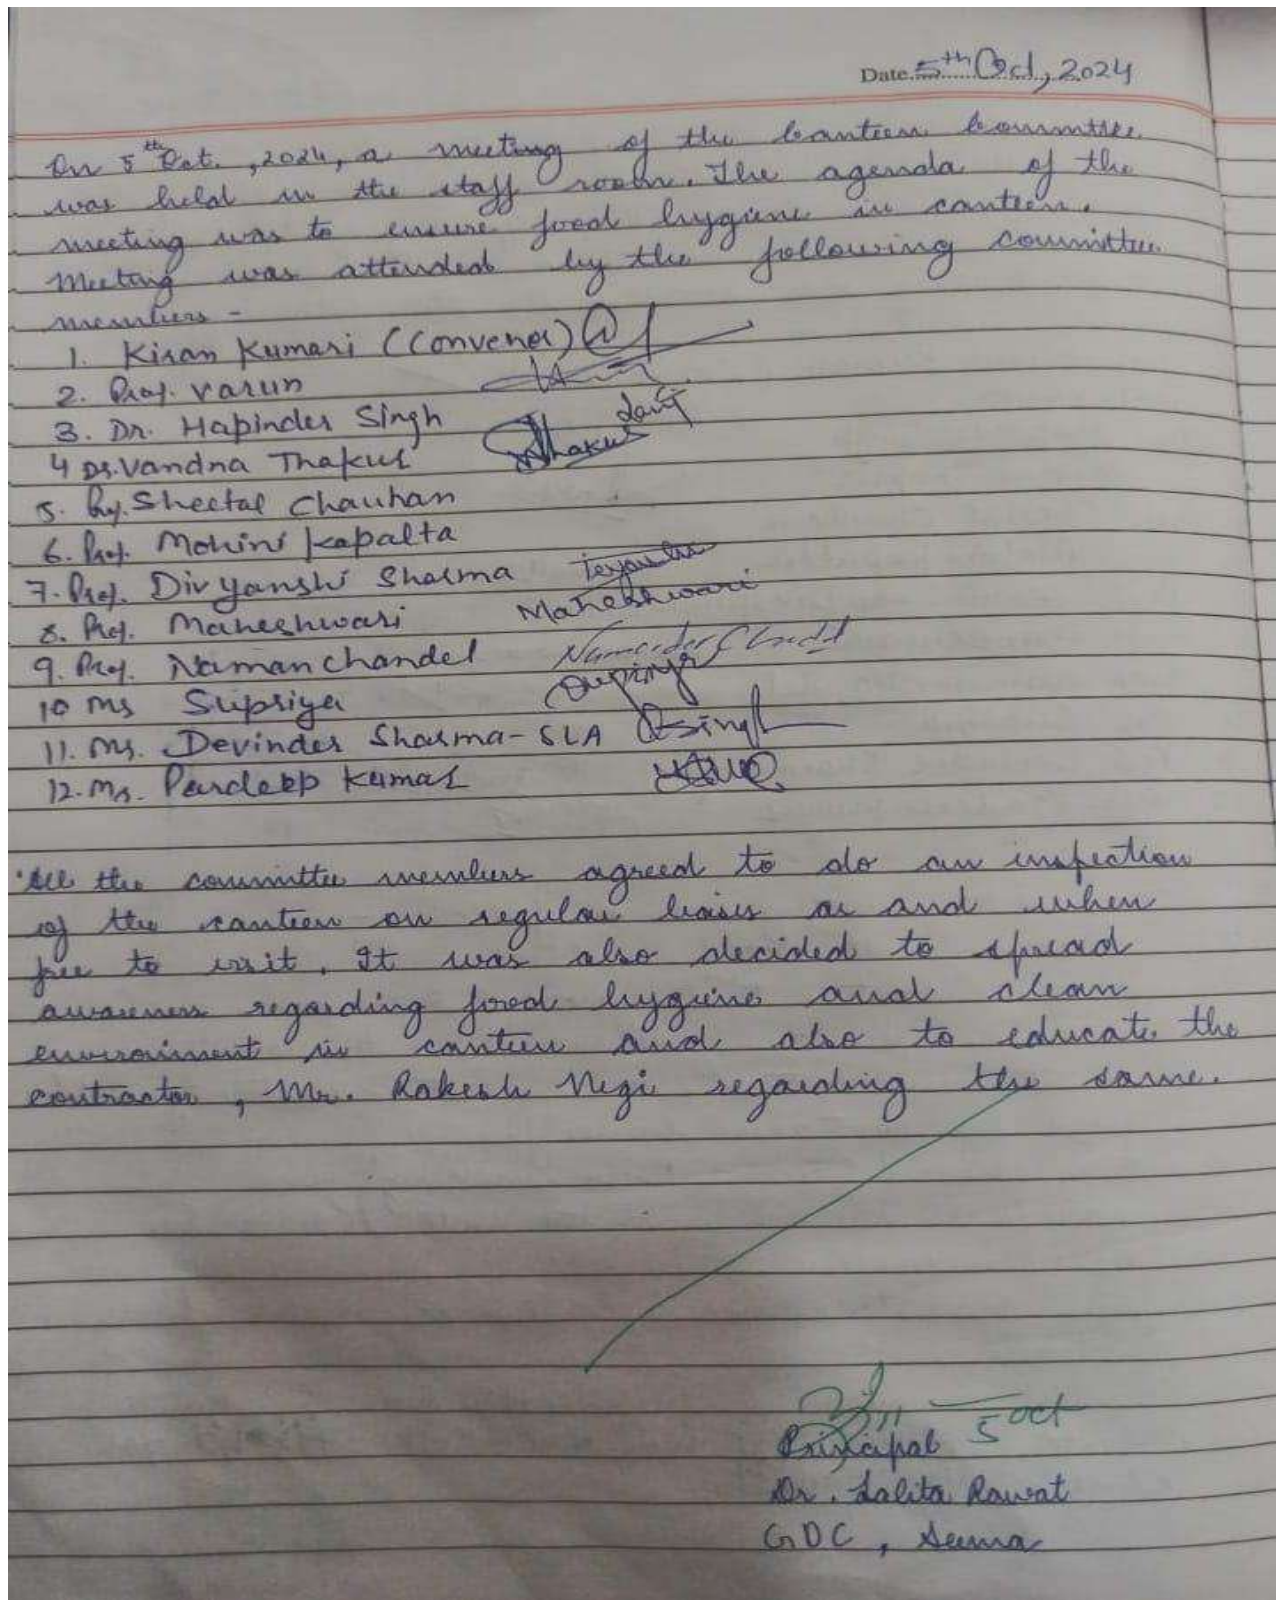 Date 5th Oct, 2024
On 5th Oct., 2024, a meeting of the Canteen Committee
was held in the staff room. The agenda of the
meeting was to ensure food hygiene in canteen.
Meeting was attended by the following committee
members -
1. Kiran Kumari (Convener)
2. Prof. Varun
3. Dr. Hapinder Singh
4 Dr. Vandna Thakur Thakur
5. Prof. Sheetal Chauhan
6. Prof. Mohini Kapalta
7. Prof. Divyanshi Sharma
8. Prof. Maheshwari Maheshwari
9. Prof. Naman Chandel
10 Ms Supriya Supriya
11. Mr. Devinder Sharma - SLA Singh
12. Mr. Pardeep Kumar
All the committee members agreed to do an inspection
of the canteen on regular basis as and when
free to visit. It was also decided to spread
awareness regarding food hygiene and clean
environment in canteen and also to educate the
contractor, Mr. Rakesh Negi regarding the same.
5 Oct
Principal
Dr. Lalita Rawat
GDC, Seema